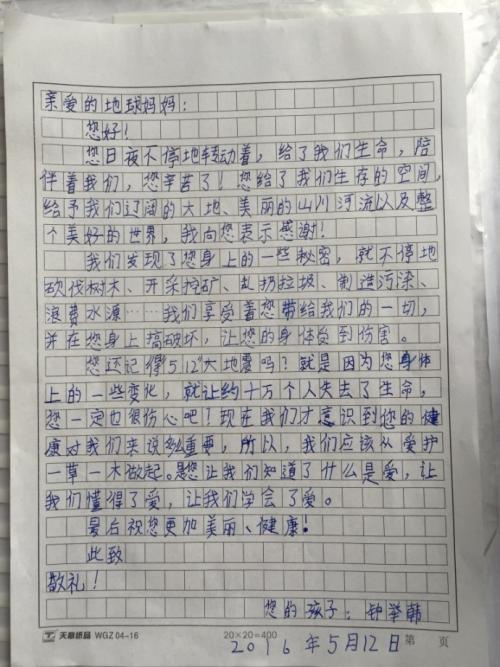 亲爱的地球妈妈：
您好！
您日夜不停地转动着，给了我们生命，陪
伴着我们，您辛苦了！您给了我们生存的空间，
给予我们辽阔的大地、美丽的山川河流以及整
个美好的世界，我向您表示感谢！
我们发现了您身上的一些秘密，就不停地
砍伐树木、开采挖矿、乱扔垃圾、制造污染、
浪费水源……我们享受着您带给我们的一切，
并在您身上搞破坏，让您的身体受到伤害。
您还记得512大地震吗？就是因为您身体
上的一些变化，就让约十万个人失去了生命，
您一定也很伤心吧？现在我们才意识到您的健
康对我们来说多么重要，所以，我们应该从爱护
一草一木做起。是您让我们知道了什么是爱，让
我们懂得了爱，让我们学会了爱。
最后祝您更加美丽、健康！
此致
敬礼！
您的孩子：钟举韩
天章纸品 WGZ 04-16 20×20=400 第 页
2016年5月12日